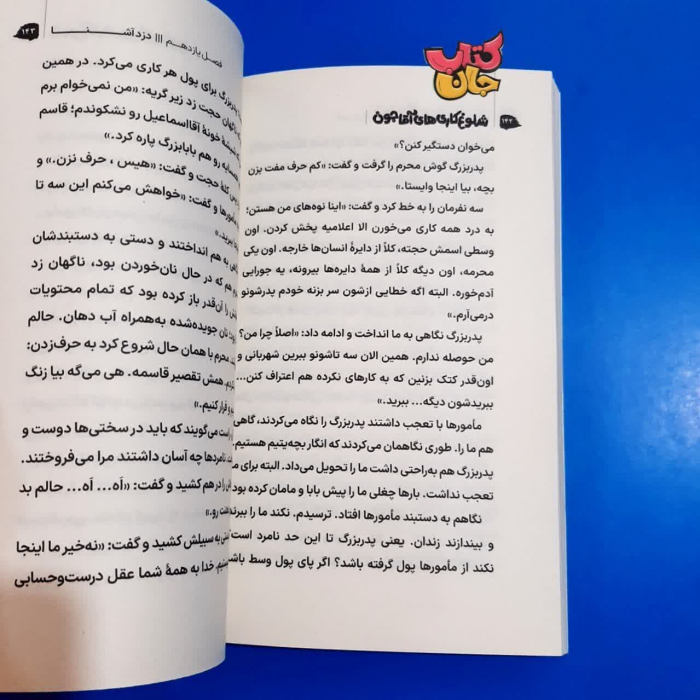 کتاب
جان
۱۴۲ شلوغ‌کاری‌های آقاجون
می‌خوان دستگیر کنن؟»
پدربزرگ گوش محرم را گرفت و گفت: «کم حرف مفت بزن
بچه، بیا اینجا وایستا.»
سه نفرمان را به خط کرد و گفت: «اینا نوه‌های من هستن؛
به درد همه کاری می‌خورن الا اعلامیه پخش کردن. اون
وسطی اسمش حجته، کلاً از دایرهٔ انسان‌ها خارجه. اون یکی
محرمه، اون دیگه کلاً از همهٔ دایره‌ها بیرونه، یه جورایی
آدم‌خوره. البته اگه خطایی ازشون سر بزنه خودم پدرشونو
درمی‌آرم.»
پدربزرگ نگاهی به ما انداخت و ادامه داد: «اصلاً چرا من؟
من حوصله ندارم. همین الان سه تاشونو ببرین شهربانی و
اون‌قدر کتک بزنین که به کارهای نکرده هم اعتراف کنن...
ببریدشون دیگه... ببرید.»
مأمورها با تعجب داشتند پدربزرگ را نگاه می‌کردند، گاهی
هم ما را. طوری نگاهمان می‌کردند که انگار بچه‌یتیم هستیم.
پدربزرگ هم به‌راحتی داشت ما را تحویل می‌داد. البته برای ما
تعجب نداشت. بارها چغلی ما را پیش بابا و مامان کرده بود.
نگاهم به دستبند مأمورها افتاد. ترسیدم. نکند ما را ببرند
و بیندازند زندان. یعنی پدربزرگ تا این حد نامرد است؟
نکند از مأمورها پول گرفته باشد؟ اگر پای پول وسط باشد
فصل یازدهم ||| دزد آشنا ۱۴۳
پدربزرگ برای پول هر کاری می‌کرد. در همین
ناگهان حجت زد زیر گریه: «من نمی‌خوام برم
شیشهٔ خونهٔ آقااسماعیل رو نشکوندم؛ قاسم
همسایه رو هم بابابزرگ پاره کرد.»
کلهٔ حجت و گفت: «هیس، حرف نزن.» و
مأمورها و گفت: «خواهش می‌کنم این سه تا
ببرید.»
به هم انداختند و دستی به دستبندشان
هم که در حال نان‌خوردن بود، ناگهان زد
را آن‌قدر باز کرده بود که تمام محتویات
نان جویده‌شده به‌همراه آب دهان. حالم
محرم با همان حال شروع کرد به حرف‌زدن:
همش تقصیر قاسمه. هی می‌گه بیا زنگ
و فرار کنیم.»
راست می‌گویند که باید در سختی‌ها دوست و
نامردها چه آسان داشتند مرا می‌فروختند.
را در هم کشید و گفت: «اَه... اَه... حالم بد
رو.»
به سبیلش کشید و گفت: «نه‌خیر ما اینجا
خدا به همهٔ شما عقل درست‌وحسابی